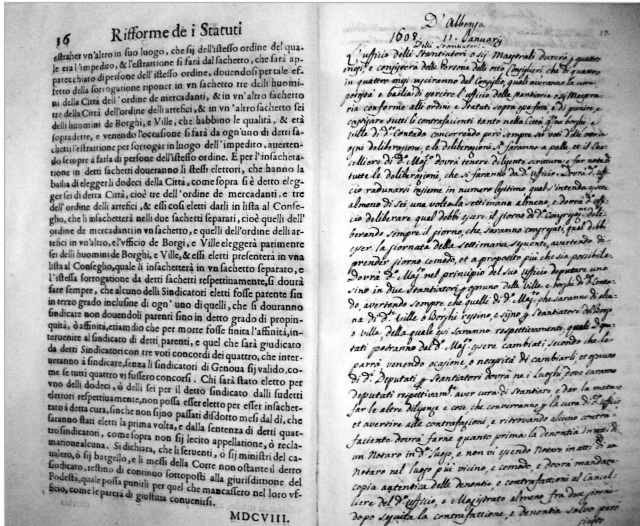 16 Rifforme de i Statuti
estraher vn'altro in suo luogo, che sij dell'istesso ordine del qua-
le era l'impedito, & l'estrattione si farà dal sachetto, che sarà ap-
parecchiato di persone dell'istesso ordine, douendosi per tale ef-
fetto della sorrogatione riponer in vn sachetto tre delli huomi-
ni della Città dell'ordine de mercadanti, & in vn'altro sachetto
tre della Città dell'ordine delli artefici, & in vn'altro sachetto sei
delli huomini de Borghi, e Ville, c'habbino le qualità, & età
sopradette, e venendo l'occasione si farà da ogn'uno di detti sa-
chetti l'estrattione per sorrogar in luogo dell'impedito, auerten-
do sempre a farla di persone dell'istesso ordine. E per l'insacheta-
tione in detti sachetti doueranno li stessi elettori, che hanno la
bailia di eleggerli dodeci della Città, come sopra si è detto eleg-
ger sei di detta Città, cioè tre dell'ordine de mercadanti, e tre
dell'ordine delli artefici, & essi così eletti darli in lista al Conse-
glio, che li insachetterà nelli due sachetti separati, cioè quelli dell'
ordine de mercadanti in vn sachetto, e quelli dell'ordine delli ar-
tefici in vn'altro, e l'vfficio de Borgi, e Ville eleggerà parimente
sei delli huomini de Borghi, e Ville, & essi eletti presenterà in vna
lista al Conseglio, quale li insachetterà in vn sachetto separato, e
l'istessa sorrogatione da detti sachetti respettiuamente, si dourà
fare sempre, che alcuno delli Sindicatori eletti fosse parente sin
in terzo grado inclusine di ogn' vno di quelli, che si douranno
sindicare non douendoli parenti sino in detto grado di propin-
quità, ò affinità, etiam dio che per morte fosse finita l'affinità, in-
teruenire al sindicato di detti parenti, e quel che sarà giudicato
da detti Sindicatori con tre voti concordi dei quattro, che inter-
uerranno à sindicare, senza li sindicatori di Genoua sij valido, co-
me se tutti quattro vi fussero concorsi. Chi sarà stato eletto per
vno delli dodeci, ò delli sei per il detto sindicato dalli sudetti
elettori respettiuamente, non possa esser eletto per esser insachet-
tato à detta cura, sinche non sijno passati disdotto mesi dal dì, che
saranno stati eletti la prima volta, e dalla sentenza di detti quat-
tro sindicatori, come sopra non sij lecito appellatione, ò recla-
matione alcuna. Si dichiara, che li seruenti, ò sij ministri del ca-
ualero, ò sij bargello, e li messi della Corte non ostante il detto
sindicato, restino di continuo sottoposti alla giurisdittione del
Podestà, quale possa punirli per quel che mancassero nel loro vf-
ficio, come le parerà di giustitia conuenirsi.
MDCVIII.
D'Albenga
17.
1608. 11. Januarij
Delli Stantiatori
L'ufficio delli Stantiatori o sij Magistrale durerà quattro
mesi, e consisterà delle Persone delli otto Consiglieri che di quattro
in quattro mesi usciranno dal Consiglio quali averanno la
potestà e bailia di
conforme alli ordini e Statuti sopra
castigare tutti li contrafacienti tanto nella Città, quanto borghi e
ville di d.º Contado concorrendo però sempre sei voti
ogni deliberatione, e le deliberationi si faranno a palle, et il Can-
celliere di d.º Mag.to dovrà tenere diligente scrittura, e far nota di
tutte le deliberationi, che si faranno da d.º ufficio. Dovrà d.º uffi-
cio radunarsi insieme in numero legitimo qual s'intenda essere
almeno di sei una volta la settimana almeno, e dovrà d.º uffi-
cio deliberare qual debbi essere il giorno di d.ª Congregat.ne deli-
berando sempre il giorno, che saranno congregati, qual debbi
esser la giornata della settimana seguente, avertendo di
prender giorno comodo, et a proposito più che sia possibile.
Dovrà d.º Mag.to nel principio del suo ufficio deputare uno
sino in due Stantiatori per ognuno delle Ville e borghi di d.º Conta-
do, avertendo sempre che quelli di d.º Mag.to che saranno
di d.ª Villa o Borghi restino, e sijno
o villa della quale essi saranno respettivamente, quali depu-
tati potranno dal d.º Mag.to essere cambiati secondo che le
parrà venendo ocasione, o necessità di cambiarli, et ognuno
di d.ti Deputati Stantiatori dovrà ne i luoghi dove saranno
deputati respettivam.te aver cura di stantiare e dar la meta e
far le altre diligenze e cose che concerneranno la cura di d.º ufficio
et avertire alle contrafationi, e ritrovando alcuno contra-
faciente dovrà farne quanto prima la denontia
un Notaro in d.º luogo, e non vi essendo Notaro in
notaro nel luogo più vicino, e comodo, e dovrà mandare
copia autentica delle denontie, e contrafationi al Cancel-
liere del d.º ufficio, e Magistrato almeno fra due giorni
dopo seguita la contrafatione, e denontia salvo però